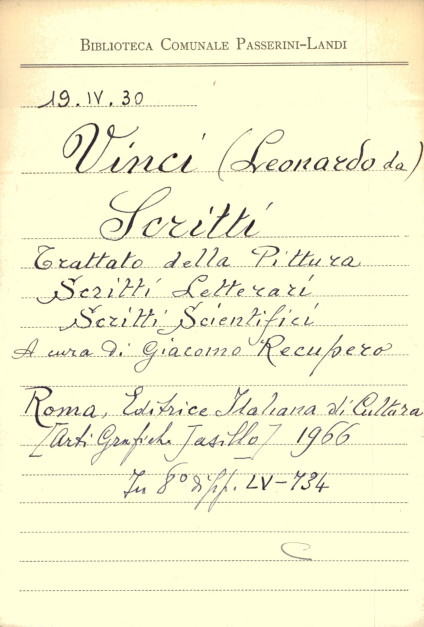 BIBLIOTECA COMUNALE PASSERINI-LANDI
19.IV.30
Vinci (Leonardo da)
Scritti
Trattato della Pittura
Scritti Letterari
Scritti Scientifici
A cura di Giacomo Recupero
Roma, Editrice Italiana di Cultura
[Arti Grafiche Jasillo] 1966
In 8° di pp. LV-734
C